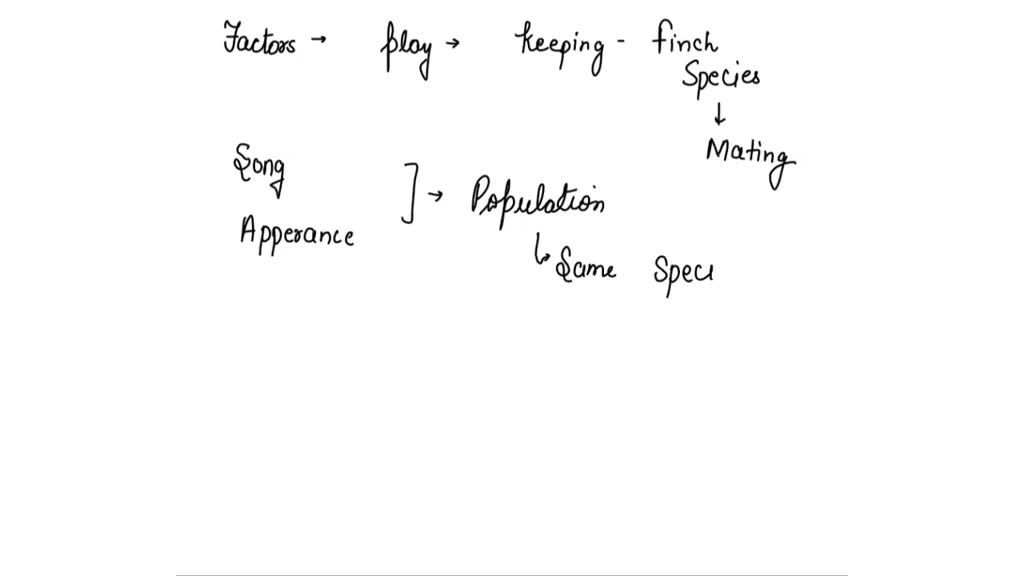 Factors → play → keeping - finch
Species
↓
Mating
Song
Apperance
] → Population
↳ Same Speci